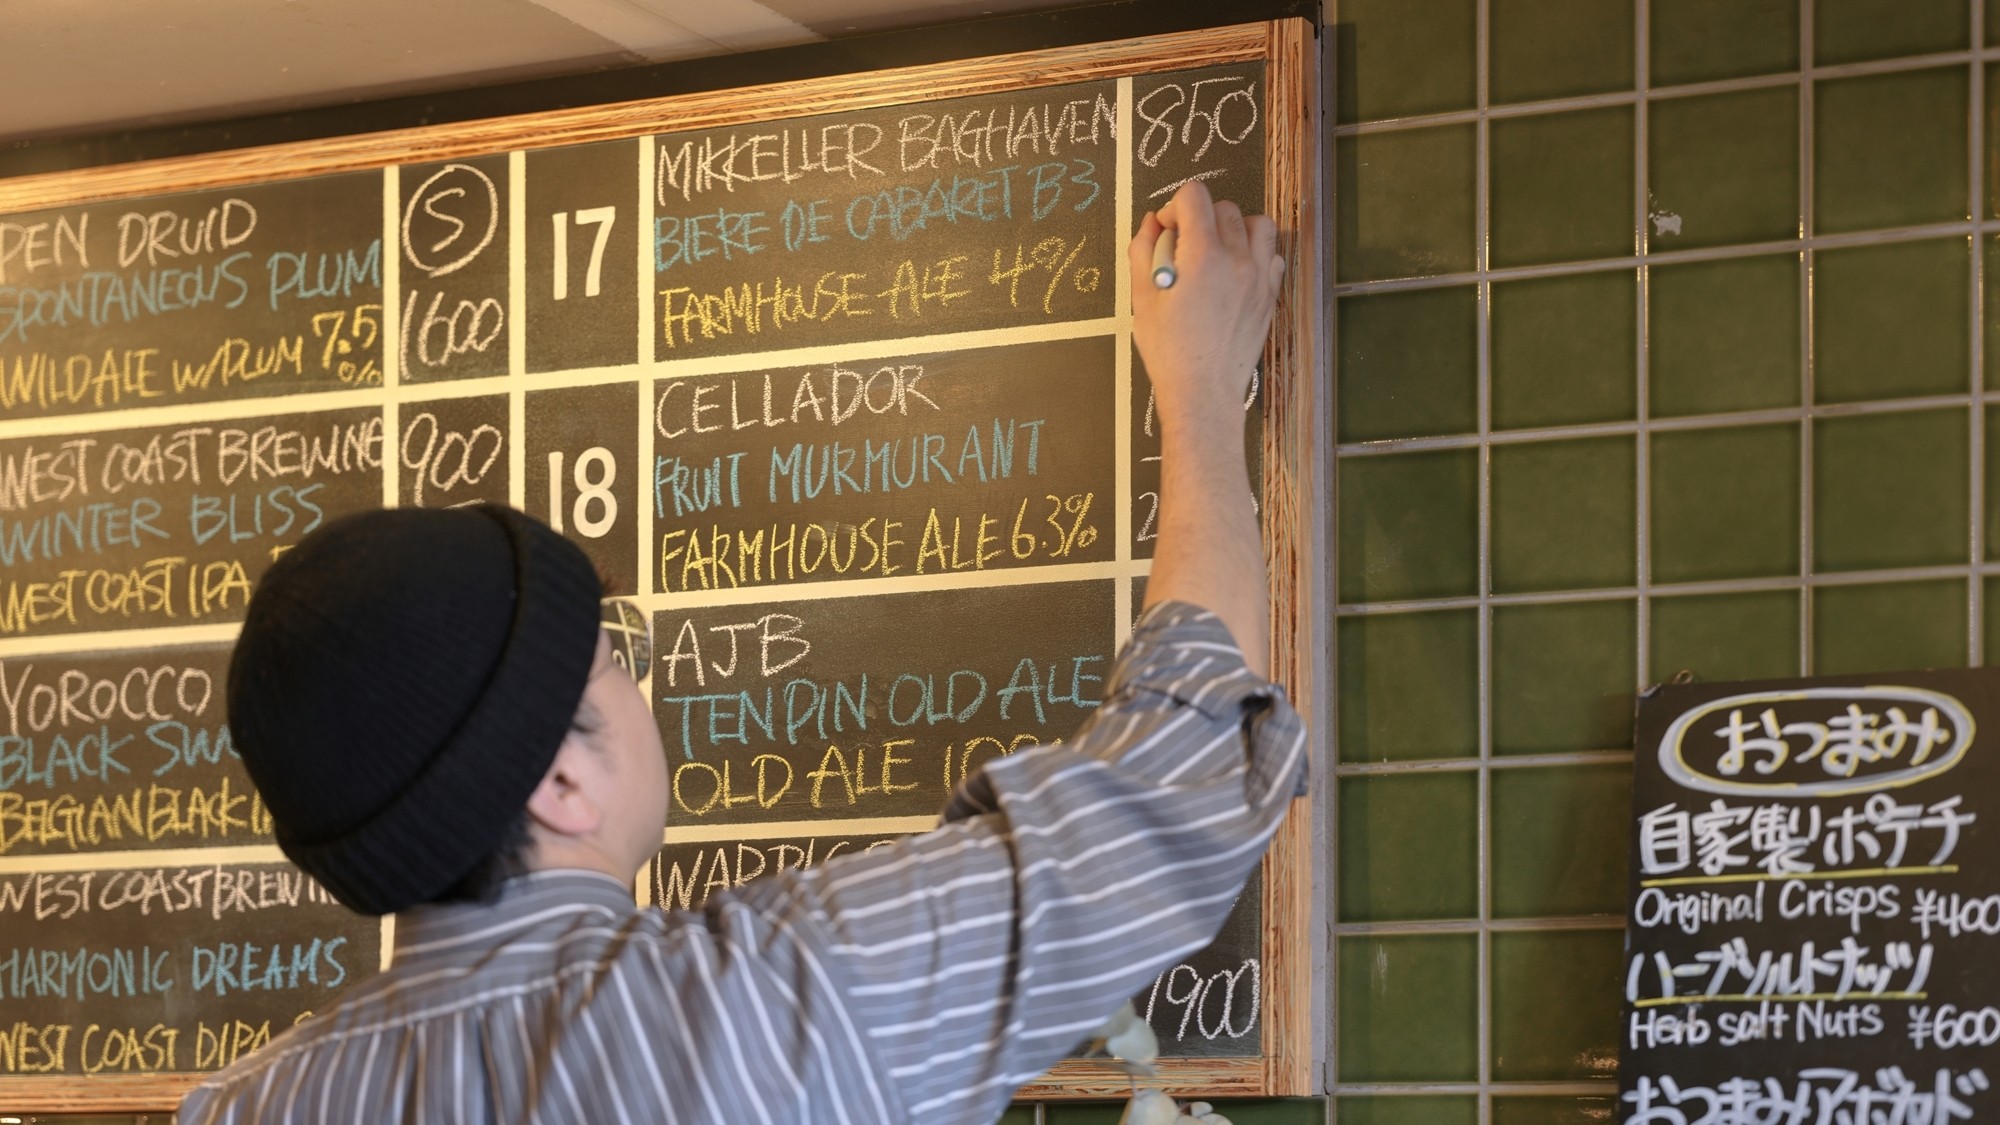 PEN DRUID
SPONTANEOUS PLUM
WILD ALE W/PLUM 7.5%
S
1600
WEST COAST BREWING
WINTER BLISS
WEST COAST IPA
900
YOROCCO
BLACK
BELGIAN BLACK
WEST COAST BREWING
HARMONIC DREAMS
WEST COAST DIPA
17
MIKKELLER BAGHAVEN
BIERE DE CABARET B3
FARMHOUSE ALE 4%
850
18
CELLADOR
FRUIT MURMURANT
FARMHOUSE ALE 6.3%
AJB
TENPIN OLD ALE
OLD ALE
1900
おつまみ
自家製ポテチ
Original Crisps ¥400
ハーブソルトナッツ
Herb salt Nuts ¥600
おつまみアボカド